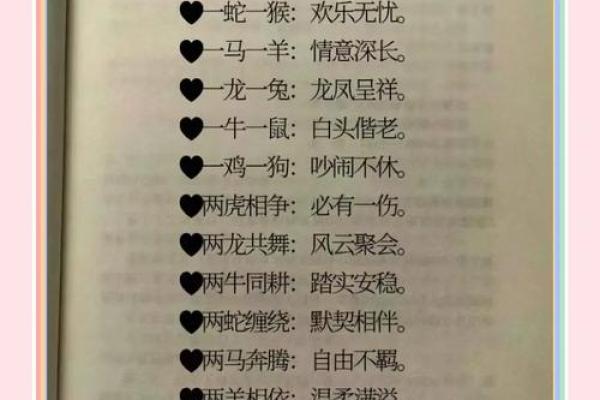 ♥一蛇一猴：欢乐无忧。
♥一马一羊：情意深长。
♥一龙一兔：龙凤呈祥。
♥一牛一鼠：白头偕老。
♥一鸡一狗：吵闹不休。
♥两虎相争：必有一伤。
♥两龙共舞：风云聚会。
♥两牛同耕：踏实安稳。
♥两蛇缠绕：默契相伴。
♥两马奔腾：自由不羁。
♥两羊相依：温柔满溢。